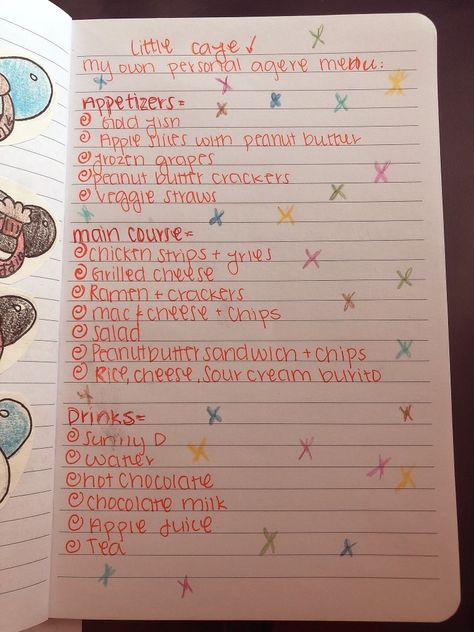 Little cafe ✓
my own personal agere menu:
Appetizers=
Gold fish
Apple slices with peanut butter
frozen grapes
Peanut butter crackers
Veggie straws
main course=
chicken strips + fries
Grilled cheese
Ramen + crackers
mac & cheese + chips
Salad
Peanutbutter sandwich + chips
Rice, cheese, sour cream burito
Drinks=
Sunny D
Water
hot chocolate
chocolate milk
Apple Juice
Tea